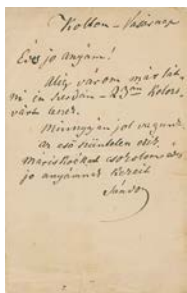 Koltó – Vasárnap
Édes jó anyám!
Alig várom már lát-
ni én szerdán – 23án Kolozs-
várt leszek.
Minnyájan jól vagyunk
az eső szüntelen esik,
csókolom
jó anyámnak kezeit
Sándor